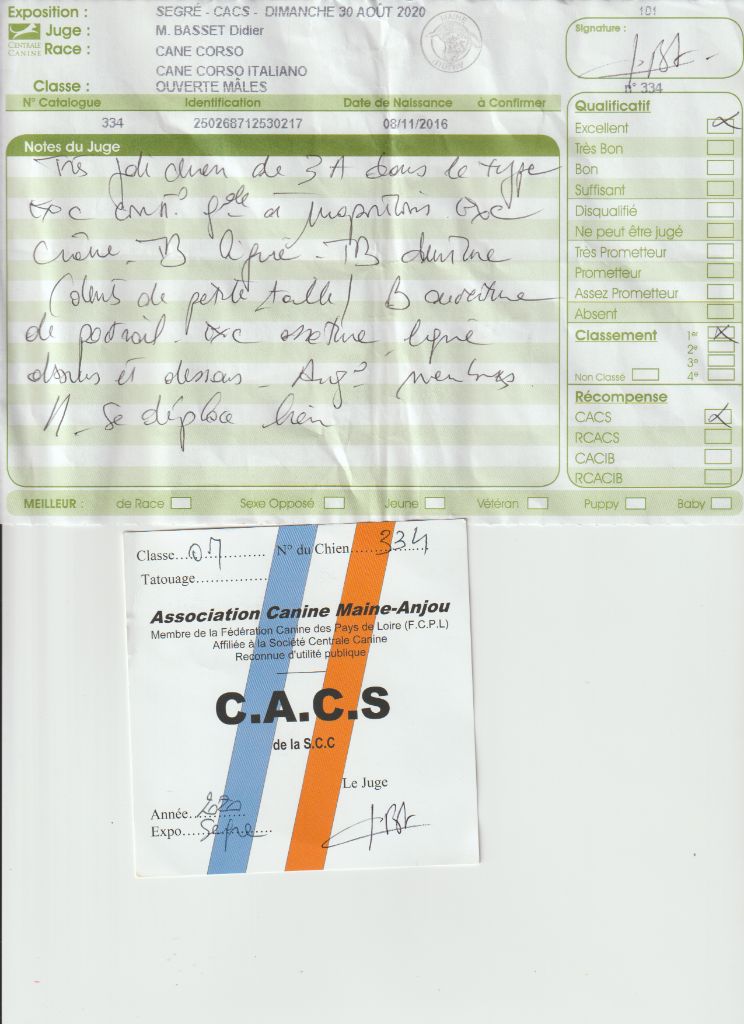 Exposition : SEGRÉ - CACS - DIMANCHE 30 AOÛT 2020
CENTRALE CANINE
Juge : M. BASSET Didier
Race : CANE CORSO
CANE CORSO ITALIANO
Classe : OUVERTE MÂLES
N° Catalogue Identification Date de Naissance à Confirmer
334 250268712530217 08/11/2016
Notes du Juge
Très joli chien de 3 A dans le type
exc const. gale et proportions. Exc
crâne. TB ligne. TB denture
(dents de petite taille) B ouverture
de poitrail. exc ossature. ligne
dessus et dessous. Ang° membres
N. Se déplace bien
101
Signature :
n° 334
Qualificatif
Excellent
Très Bon
Bon
Suffisant
Disqualifié
Ne peut être jugé
Très Prometteur
Prometteur
Assez Prometteur
Absent
Classement 1er
2e
3e
Non Classé 4e
Récompense
CACS
RCACS
CACIB
RCACIB
MEILLEUR : de Race Sexe Opposé Jeune Vétéran Puppy Baby
MAIRIE
Classe...OM............ N° du Chien....334........
Tatouage...............
Association Canine Maine-Anjou
Membre de la Fédération Canine des Pays de Loire (F.C.P.L)
Affiliée à la Société Centrale Canine
Reconnue d'utilité publique
C.A.C.S
de la S.C.C
Le Juge
Année...2020........
Expo.....Segré....